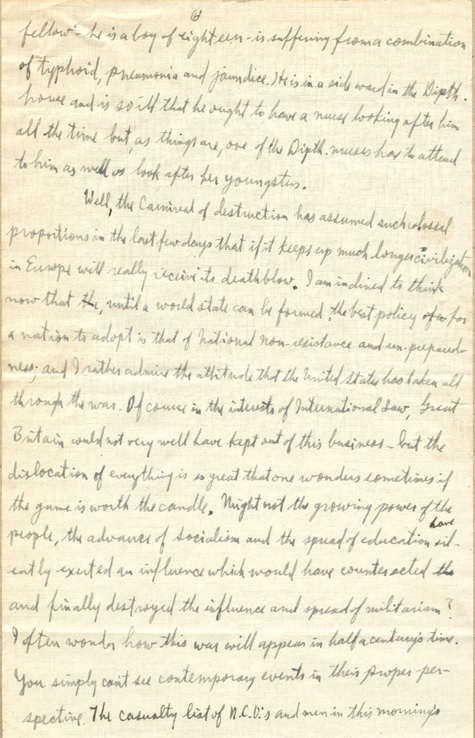 6
fellow - he is a boy of eighteen - is suffering from a combination
of typhoid, pneumonia and jaundice. He is in a side ward in the Dipth.
house and is so ill that he ought to have a nurse looking after him
all the time but, as things are, one of the Dipth. nurses has to attend
to him as well as look after her youngsters.
Well, the Carnival of destruction has assumed such colossal
propotions in the last few days that if it keeps up much longer civilization
in Europe will really receive its deathblow. I am inclined to think
now that the, until a world state can be formed, the best policy of a for
a nation to adopt is that of National non-resistance and un-prepared-
ness; and I rather admire the attitude that the United States has taken all
through the war. Of course in the interests of International Law, Great
Britain could not very well have kept out of this business - but the
dislocation of everything is so great that one wonders sometimes if
the game is worth the candle. Might not the growing power of the
people, the advance of Socialism and the spread of education have sil-
ently exerted an influence which would have counteracted the
and finally destroyed the influence and spread of militarism?
I often wonder how this war will appear in half a century's time.
You simply can't see contemporary events in their proper per-
spective. The casualty list of N.C.O's and men in this morning's